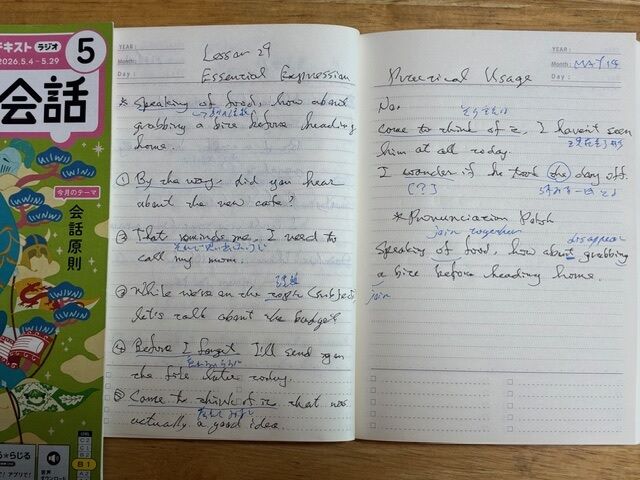 テキスト ラジオ 5
2026.5.4 - 5.29
会話
今月のテーマ
会話原則
C2
C1
B2
B1
A2
YEAR :
Month :
Day :
Lesson 29
Essential Expression
* Speaking of food, how about
grabbing a bite before heading
home.
① By the way, did you hear
about the new cafe?
② That reminds me, I need to
call my mom.
③ While we're on the topic (subject)
let's talk about the budget
④ Before I forget I'll send you
the file later today.
⑤ Come to think of it that was
actually a good idea.
YEAR :
Month : MAY 19
Day :
Practical Usage
No.
そういえば
Come to think of it, I haven't seen
現在完了形
him at all today.
I wonder if he took the day off.
[?]
* Pronunciation Polish
join together
disappear
Speaking of food, how about grabbing
a bite before heading home.
join